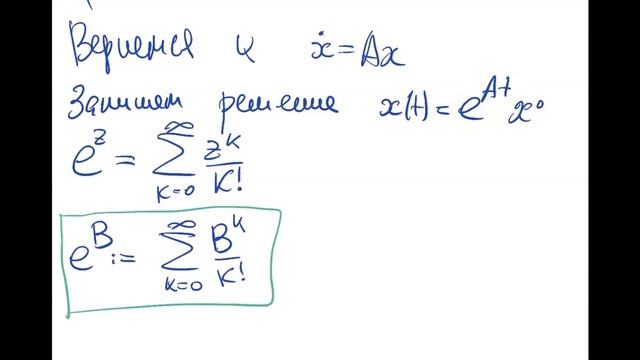 Вернемся к ẋ = Ax
Запишем решение x(t) = e^{At} x⁰
e^z = ∑_{k=0}^{∞} z^k / k!
e^B := ∑_{k=0}^{∞} B^k / k!